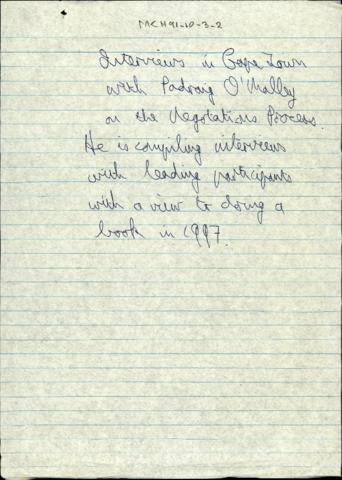 MCH91-10-3-2
Interviews in Cape Town
with Padraig O'Malley
on the Negotiations Process.
He is compiling interviews
with leading participants
with a view to doing a
book in 1997.